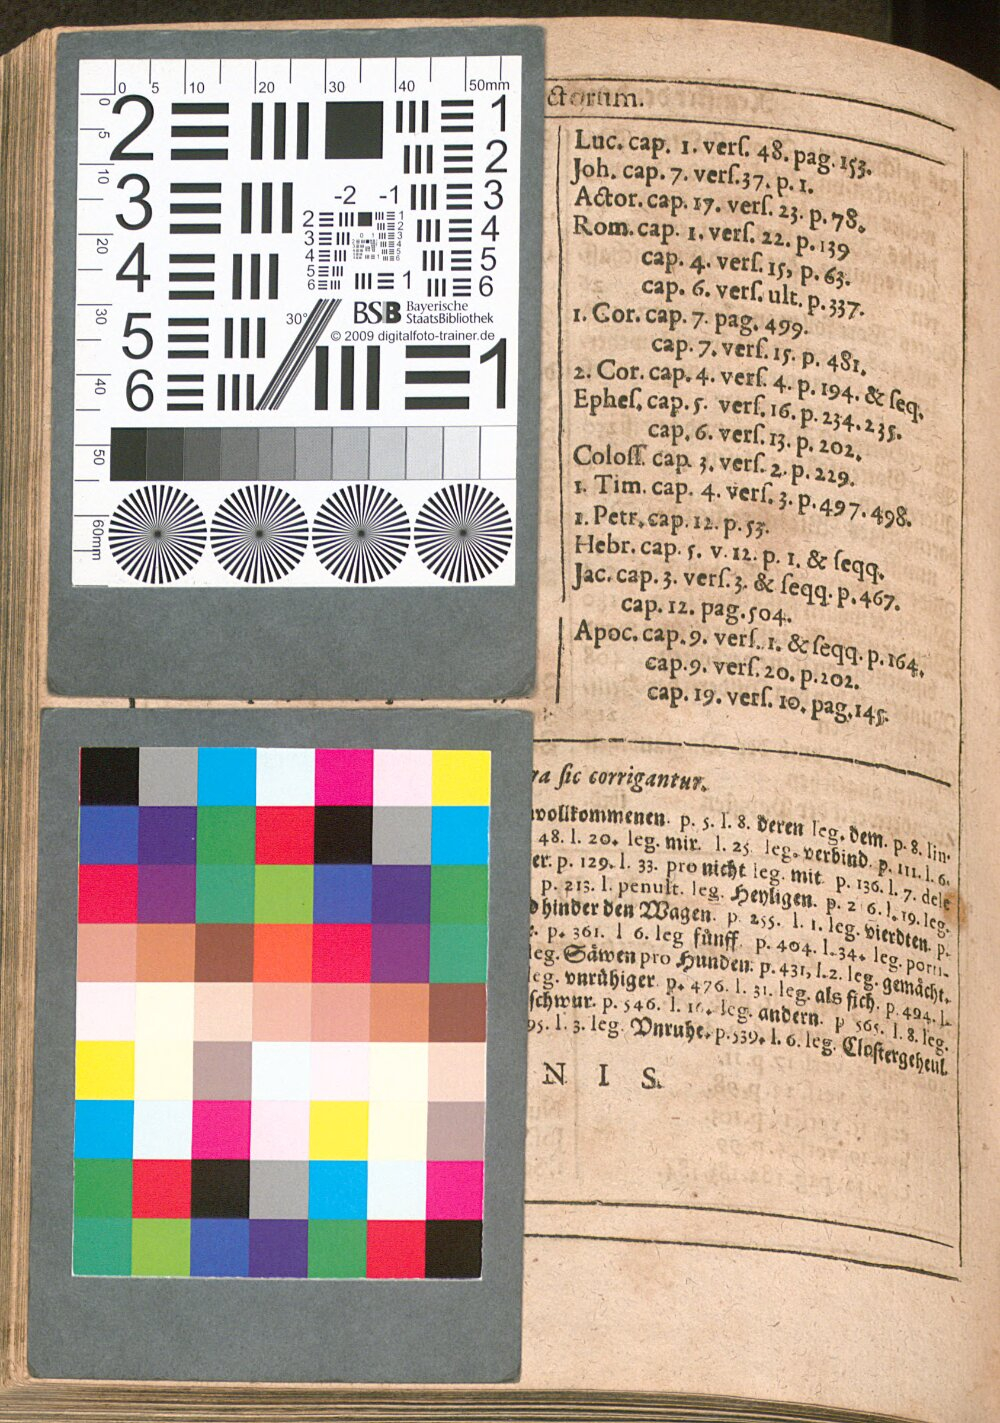 0 5 10 20 30 40 50mm
0 5 10 20 30 40 50 60mm
2 1
2
3 3
-2 -1
4 4
5
6
2 1
3 2
4 3
5 4
6 5
6
1
30°
BSB Bayerische
StaatsBibliothek
© 2009 digitalfoto-trainer.de
5
6
1
ctorum.
Luc. cap. 1. verſ. 48. pag. 153.
Joh. cap. 7. verſ.37. p. 1.
Actor. cap. 17. verſ. 23. p. 78.
Rom. cap. 1. verſ. 22. p. 139
cap. 4. verſ. 15, p. 63.
cap. 6. verſ. ult. p. 337.
1. Cor. cap. 7. pag. 499.
cap. 7. verſ. 15. p. 481.
2. Cor. cap. 4. verſ. 4. p. 194. & ſeq.
Epheſ. cap. 5. verſ. 16. p. 234.235.
cap. 6. verſ. 13. p. 202.
Coloſſ. cap. 3. verſ. 2. p. 229.
1. Tim. cap. 4. verſ. 3. p. 497. 498.
1. Petr. cap. 12. p. 53.
Hebr. cap. 5. v. 12. p. 1. & ſeqq.
Jac. cap. 3. verſ. 3. & ſeqq. p. 467.
cap. 12. pag. 504.
Apoc. cap. 9. verſ. 1. & ſeqq. p. 164.
cap. 9. verſ. 20. p. 202.
cap. 19. verſ. 10. pag. 145.
ra ſic corrigantur.
vollkommenen. p. 5. l. 8. deren leg. dem. p. 8. lin.
48. l. 20. leg. mir. l. 25 leg. verbind. p. 111. l. 6.
er. p. 129. l. 33. pro nicht leg. mit. p. 136. l. 7. dele
p. 213. l. penult. leg. Heyligen. p. 2 6. l. 19. leg.
d hinder den Wagen. p. 255. l. 1. leg. vierdten. p.
p. 361. l 6. leg fünff. p. 404. l. 34. leg. porri-
leg. Säwen pro Hunden. p. 431, l. 2. leg. gemächt.
leg. vnrühiger. p. 476. l. 31. leg. als ſich. p. 494. l.
ſchwur. p. 546. l. 16. leg. andern. p 565. l. 8. leg.
95. l. 3. leg. Vnruhe. p. 539. l. 6. leg. Cloſtergeheul.
N I S.